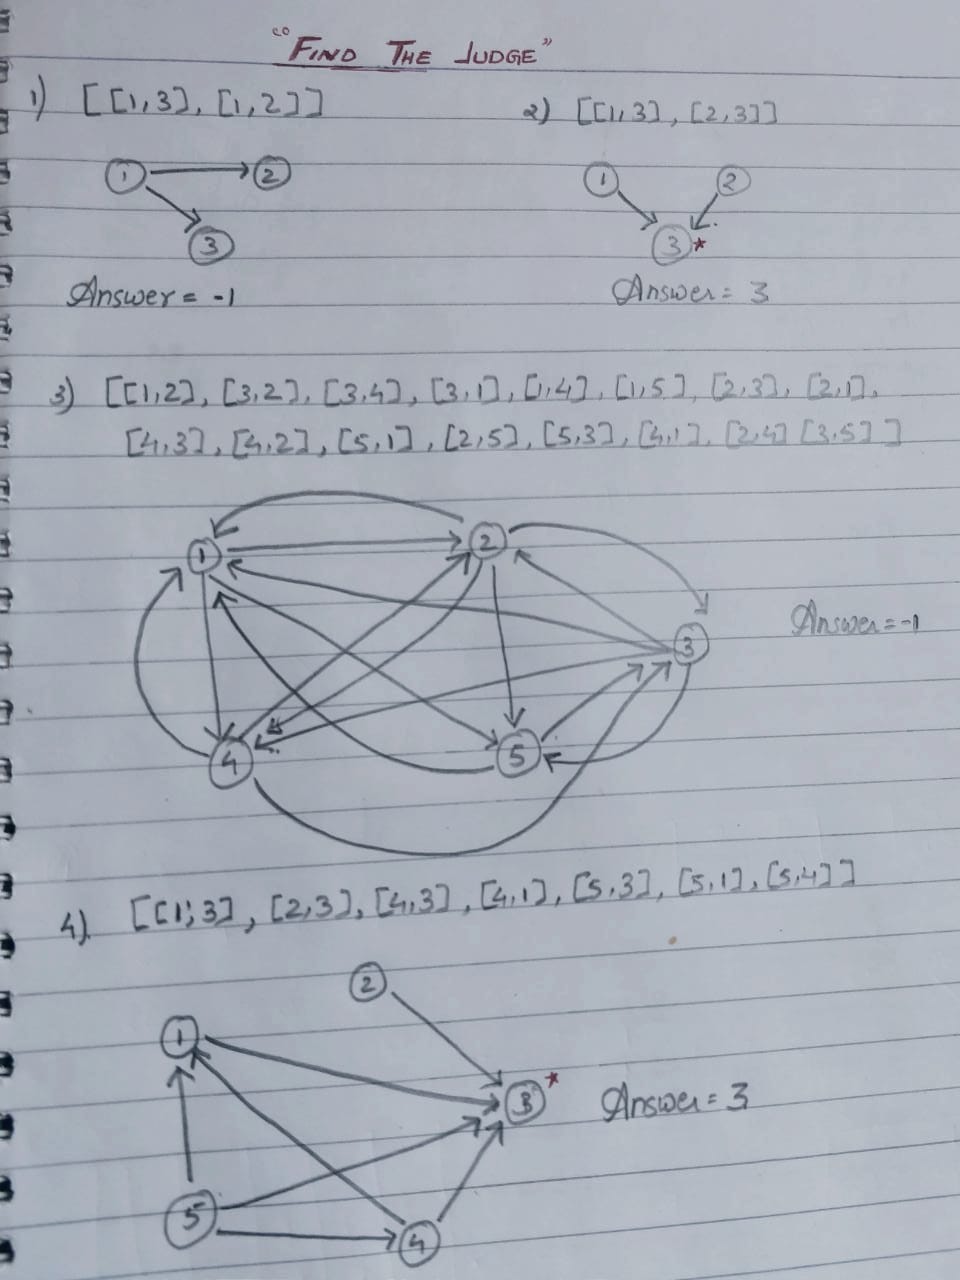 "FIND THE JUDGE"
1) [[1,3], [1,2]]
2) [[1,3], [2,3]]
1 2
3
Answer = -1
1 2
3*
Answer = 3
3) [[1,2], [3,2], [3,4], [3,1], [1,4], [1,5], [2,3], [2,1],
[4,3], [4,2], [5,1], [2,5], [5,3], [4,1], [2,4] [3,5]]
1 2
3
Answer = -1
4 5
4). [[1,3], [2,3], [4,3], [4,1], [5,3], [5,1], [5,4]]
2
1
3* Answer = 3
5 4